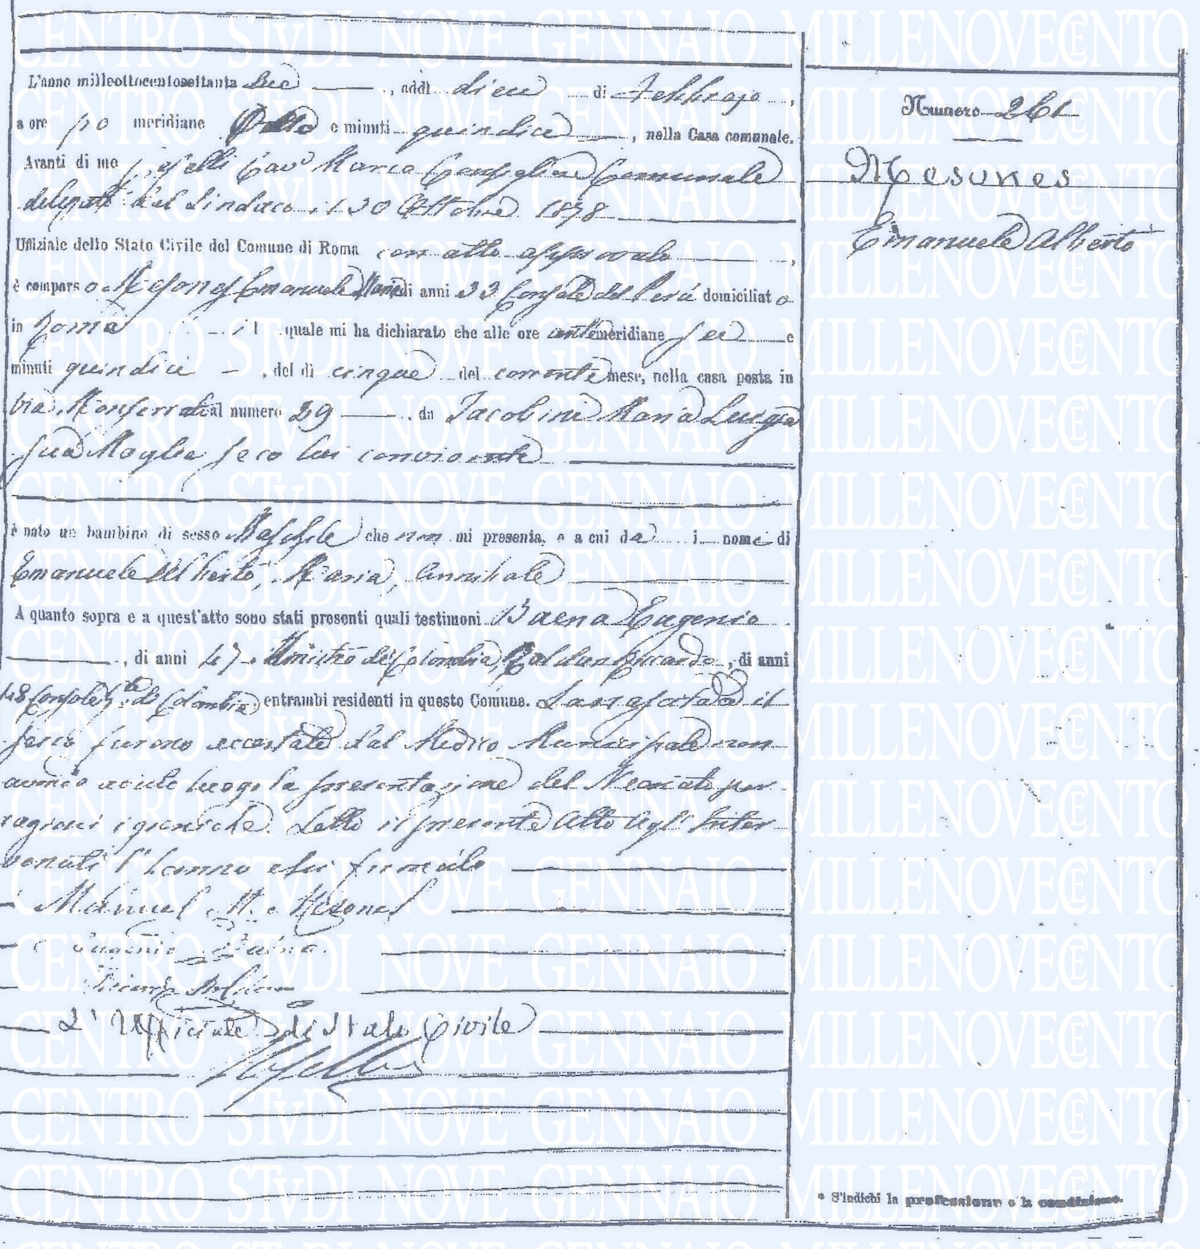 L'anno milleottocentosettanta , addì dieci di Febbrajo ,
a ore po meridiane e minuti quindici , nella Casa comunale.
Avanti di me Cav. Marco Consigliere Comunale
delegato dal Sindaco il 30 Ottobre 1878
Uffiziale dello Stato Civile del Comune di Roma con atto
è comparso Mesones Emanuele di anni 33 Console del Perù domiciliato
in Roma il quale mi ha dichiarato che alle ore antemeridiane sei e
minuti quindici , del dì cinque del corrente mese, nella casa posta in
via Monserrato al numero 29 da Jacobini Maria Luigia
sua Moglie seco lui convivente
è nato un bambino di sesso Maschile che non mi presenta, e a cui da i nomi di
Emanuele Alberto, Maria, Annibale
A quanto sopra e a quest'atto sono stati presenti quali testimoni Baena Eugenio
, di anni 47 Ministro di Colombia, Riccardo , di anni
48 Console di Colombia entrambi residenti in questo Comune. La nascita ed il
sesso furono accertate dal Medico Municipale non
avendo avuto luogo la presentazione del Neonato per
ragioni igieniche. Letto il presente Atto agli Inter-
venuti l'hanno firmato
Manuel M. Mesones
Eugenio Baena
L'Uffiziale di Stato Civile
Numero 261
Mesones
Emanuele Alberto
* S'indichi la professione o la condizione.
CENTRO STVDI NOVE GENNAIO MILLENOVECENTO